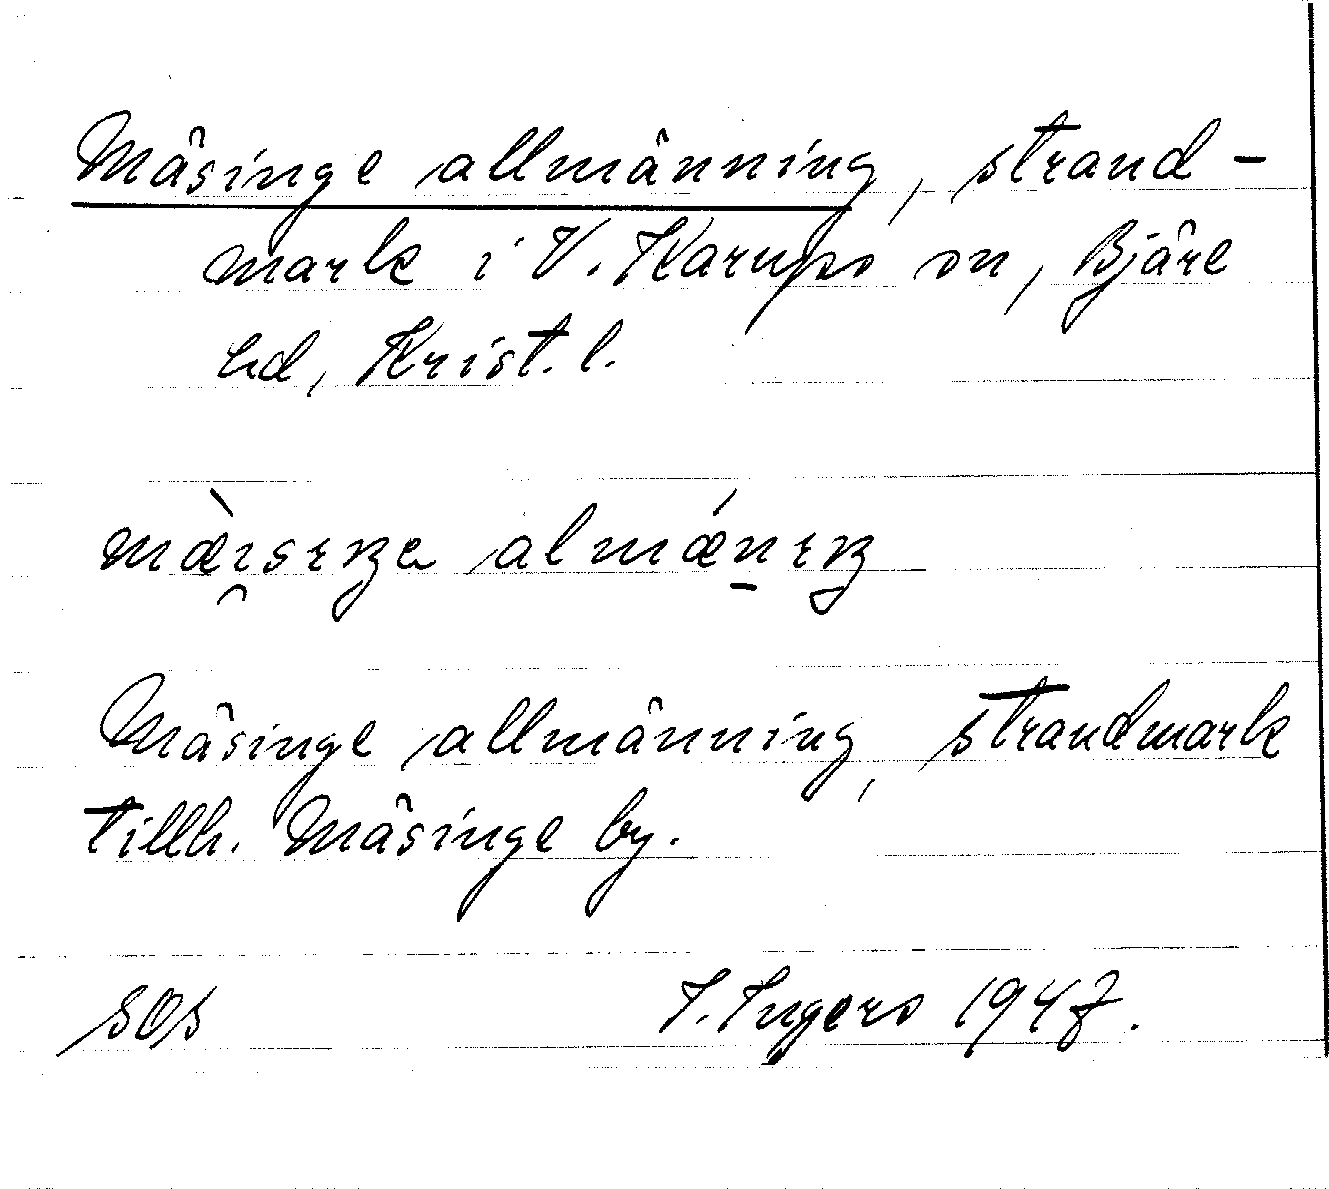 Mäsinge allmänning, strand-
mark i V. Karups sn, Bjäre
hd, Krist. l.
mæ̀ı̯sıŋa almǽn̠ıŋ
Mäsinge allmänning, strandmark
tillh. Mäsinge by.
SOS I. Ingers 1947.